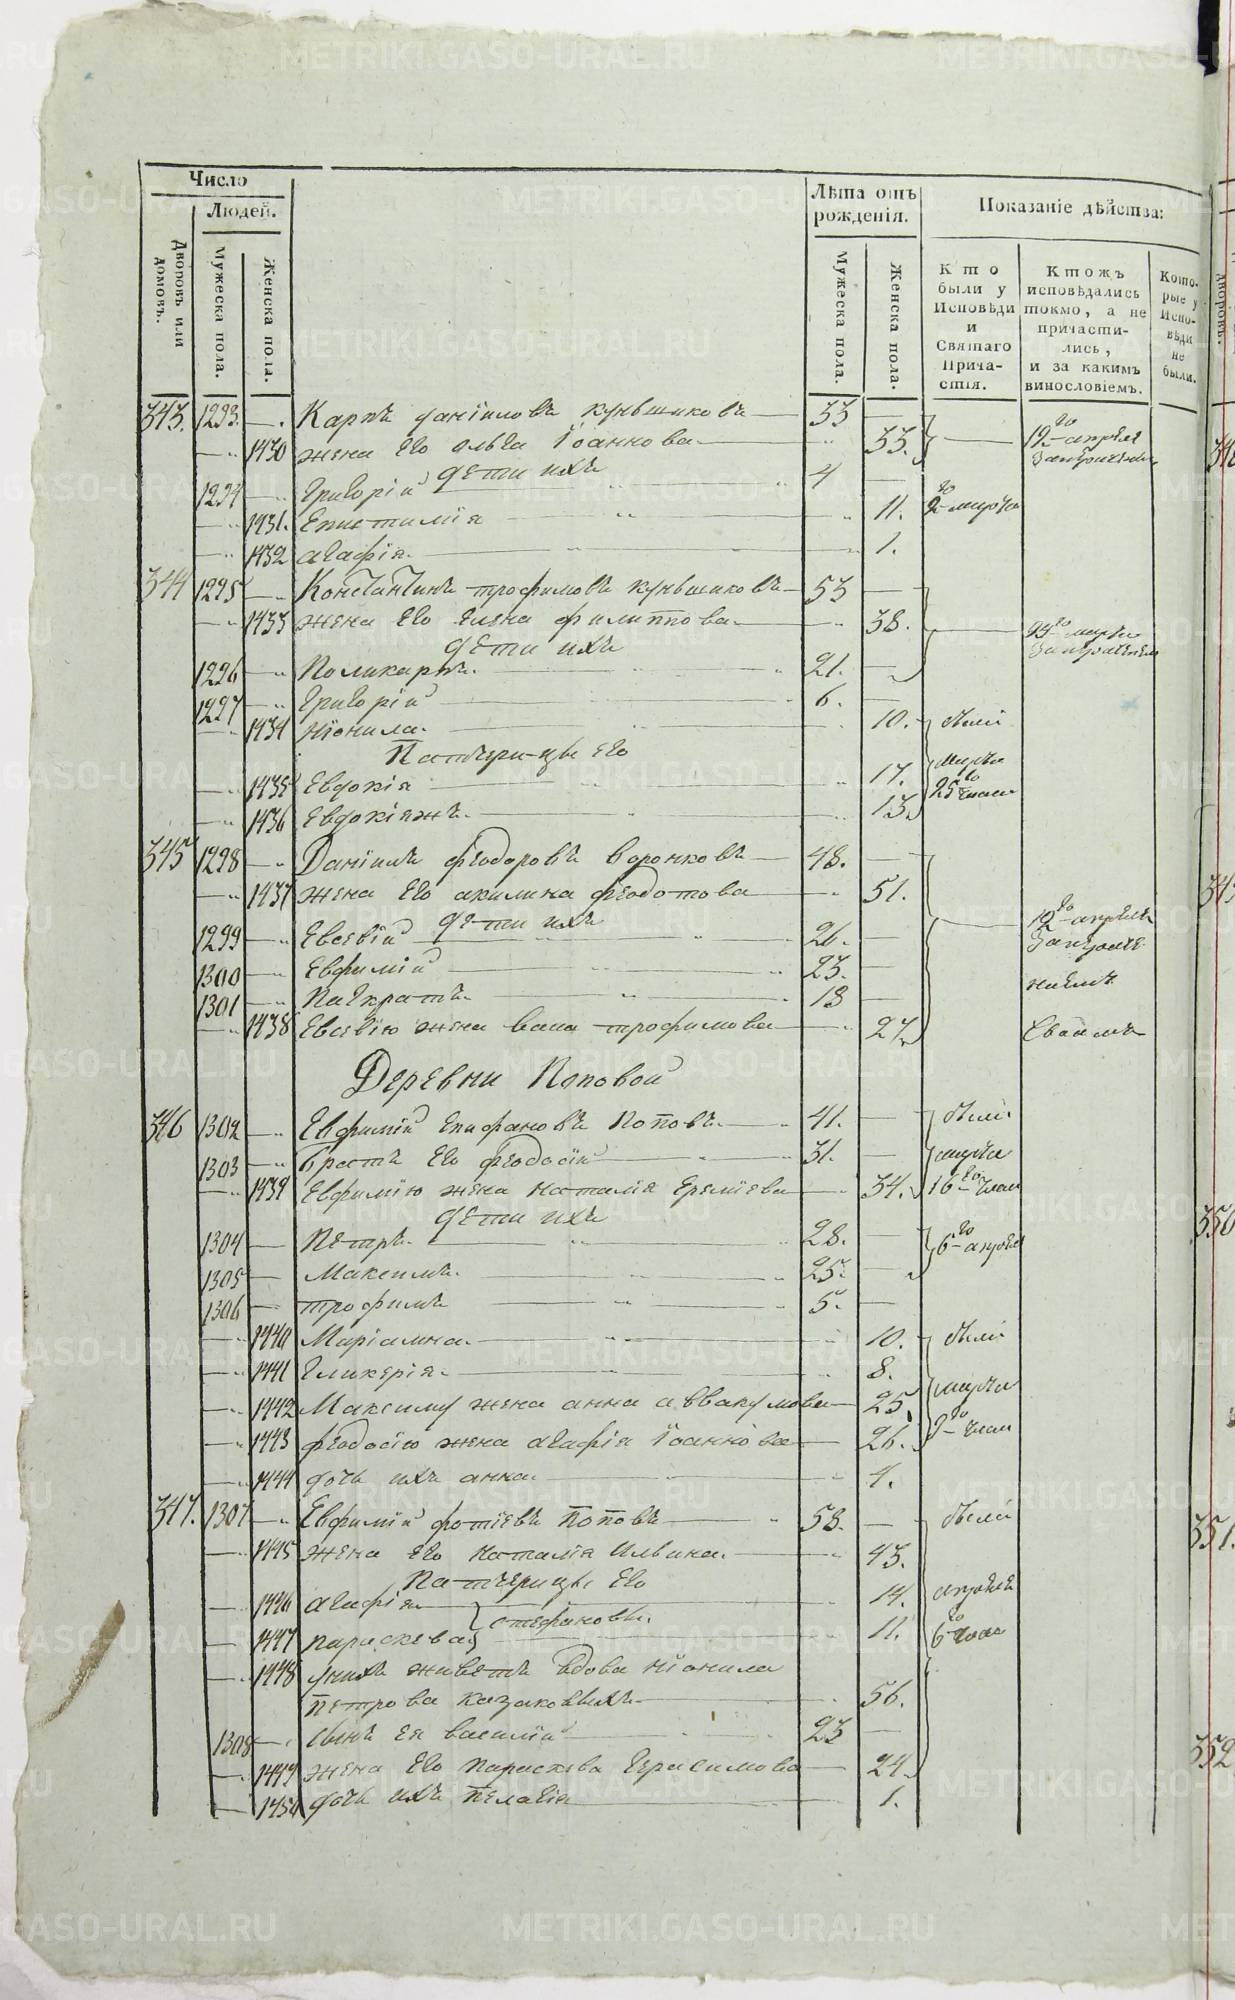 Число
Людей.
Дворовъ или домовъ.
Мужеска пола.
Женска пола.
Лѣта отъ рожденія.
Мужеска пола.
Женска пола.
Показаніе дѣйства:
Кто были у Исповѣди и Святаго Причастія.
Ктожъ исповѣдались токмо, а не причастились, и за какимъ винословіемъ.
Которые у Исповѣди не были.
343. 1293. Карпъ Даніиловъ Куньщиковъ 33 12го апрѣля
1430 жена его Ольга Іоаннова 33.
дети ихъ
1294 Григорій 4
1431. Епистимія 11. 2го марта
1432 Агафія 1.
344 1295 Константинъ Трофимовъ Куньщиковъ 53
1433 жена его Елена Филиппова 38. марта
дети ихъ
1296 Поликарпъ 21.
1297 Григорій 6.
1434 Ніонила 10. были
Патчерицы его марта
1435 Евдокія 17. 25го числа
1436 Евдокіяжъ 13.
345 1298 Даніилъ Феодоровъ Воронковъ 48.
1437 жена его Акилина Феодотова 51.
дети ихъ апрѣля
1299 Евсевій 26.
1300 Евфимій 23.
1301 Панкратъ 18
1438 Евсевію жена Васа Трофимова 27
Деревни Поповой
346 1302 Евфимій Епифановъ Поповъ 41. были
1303 братъ его Феодосій 31. марта
1439 Евфимію жена Наталія Еремѣева 34. 16го числа
дети ихъ
1304 Петръ 28. 6го апрѣля
1305 Максимъ 25.
1306 Трофимъ 5.
1440 Маріамна 10. были
1441 Гликерія 8.
1442 Максиму жена Анна Аввакумова 25 марта
1443 Феодосію жена Агафія Іоаннова 26. 9го числа
1444 дочь ихъ Анна 4.
347. 1307 Евфимій Фотіевъ Поповъ 58. были
1445 жена его Наталія Ильина 43.
Патчерицы его
1446 Агафія Стефановы. 14. апрѣля
1447 Параскева 11. 6го числа
1448 у нихъ живетъ вдова Ніонила
Петрова Казаковыхъ 56.
1308 сынъ ея Василій 23
1449 жена его Параскева Герасимова 24.
1450 дочь ихъ Пелагія 1.